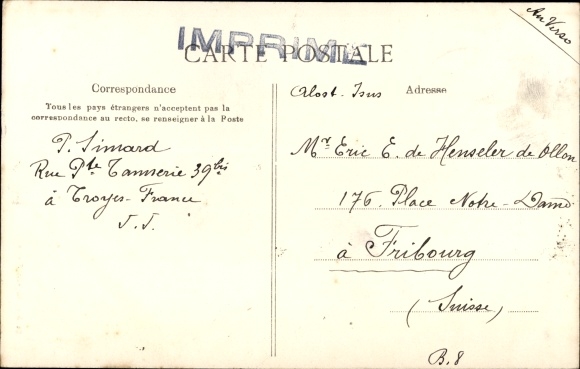 Au Verso
IMPRIMÉ
CARTE POSTALE
Correspondance
Tous les pays étrangers n'acceptent pas la
correspondance au recto, se renseigner à la Poste
P. Simard
Rue Pte Tannerie 39 bis
à Troyes-France
J. J.
Alost-Isns
Adresse
Mr Eric E. de Henseler de Ollon
176. Place Notre-Dame
à Fribourg
(Suisse)
B. 8